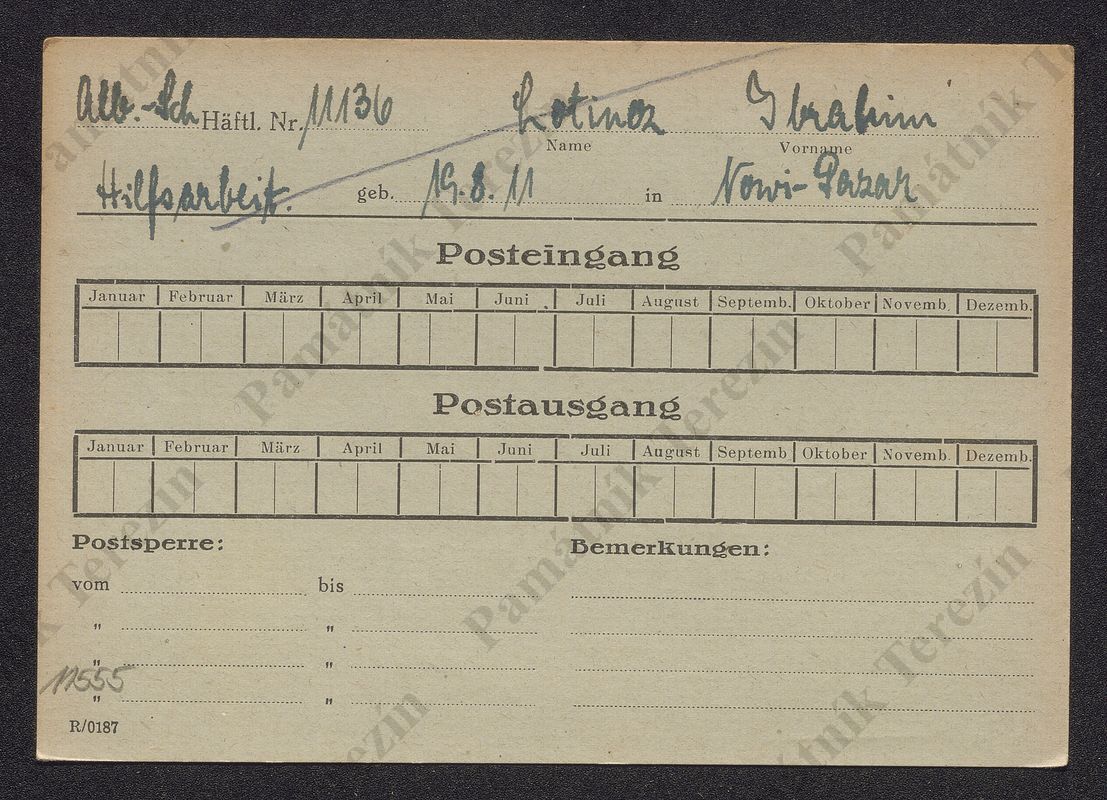 Alb.-Sch Häftl. Nr. 11136 Lotinac Ibrahim
Name Vorname
Hilfsarbeit. geb. 19.8.11 in Nowi-Pazar
Posteingang
Januar Februar März April Mai Juni Juli August Septemb. Oktober Novemb. Dezemb.
Postausgang
Januar Februar März April Mai Juni Juli August Septemb Oktober Novemb. Dezemb.
Postsperre: Bemerkungen:
vom bis
" "
" "
11555
" "
R/0187
Památník Terezín